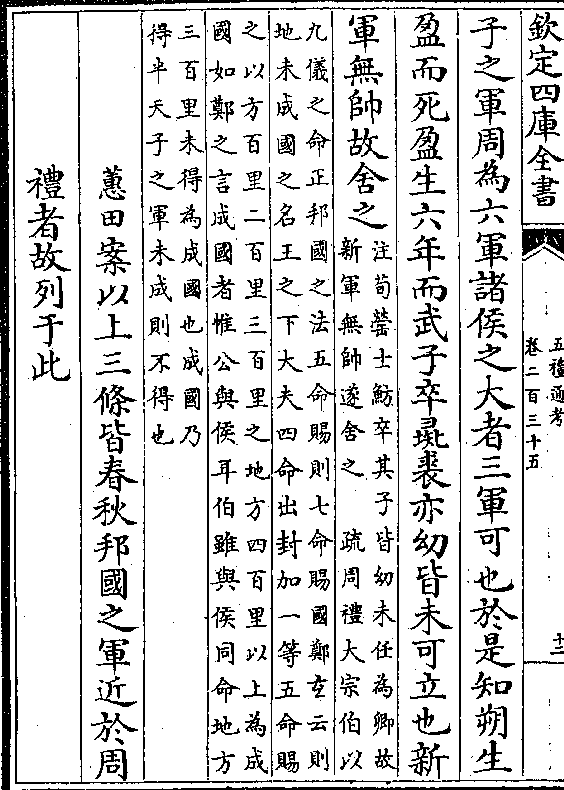 欽定四庫全書
五禮通考
卷二百三十五
十二
子之軍周為六軍諸侯之大者三軍可也於是知朔生
盈而死盈生六年而武子卒彘裘亦幼皆未可立也新
軍無帥故舍之
注荀罃士魴卒其子皆幼未任為卿故
新軍無帥遂舍之 疏周禮大宗伯以
九儀之命正邦國之法五命賜則七命賜國鄭玄云則
地未成國之名王之下大夫四命出封加一等五命賜
之以方百里二百里三百里之地方四百里以上為成
國如鄭之言成國者惟公與侯耳伯雖與侯同命地方
三百里未得為成國也成國乃
得半天子之軍未成則不得也
蕙田案以上三條皆春秋邦國之軍近於周
禮者故列于此